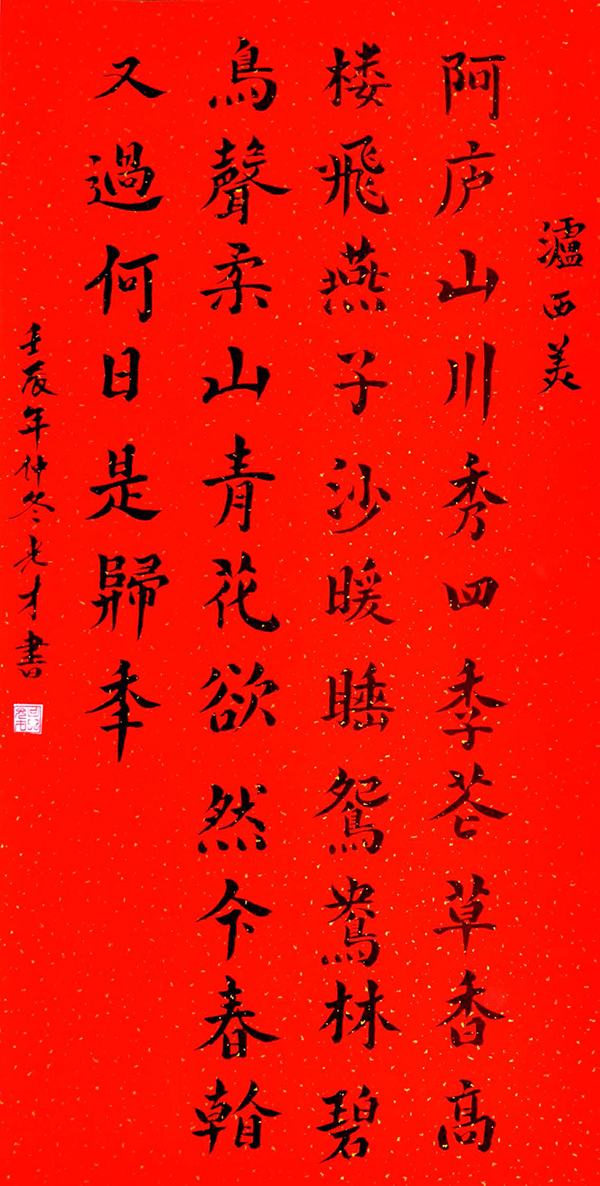 瀘西美
阿庐山川秀四季花草香高
楼飛燕子沙暖睡鴛鴦林碧
鳥聲柔山青花欲然今春看
又過何日是歸年
壬辰年仲冬老才書